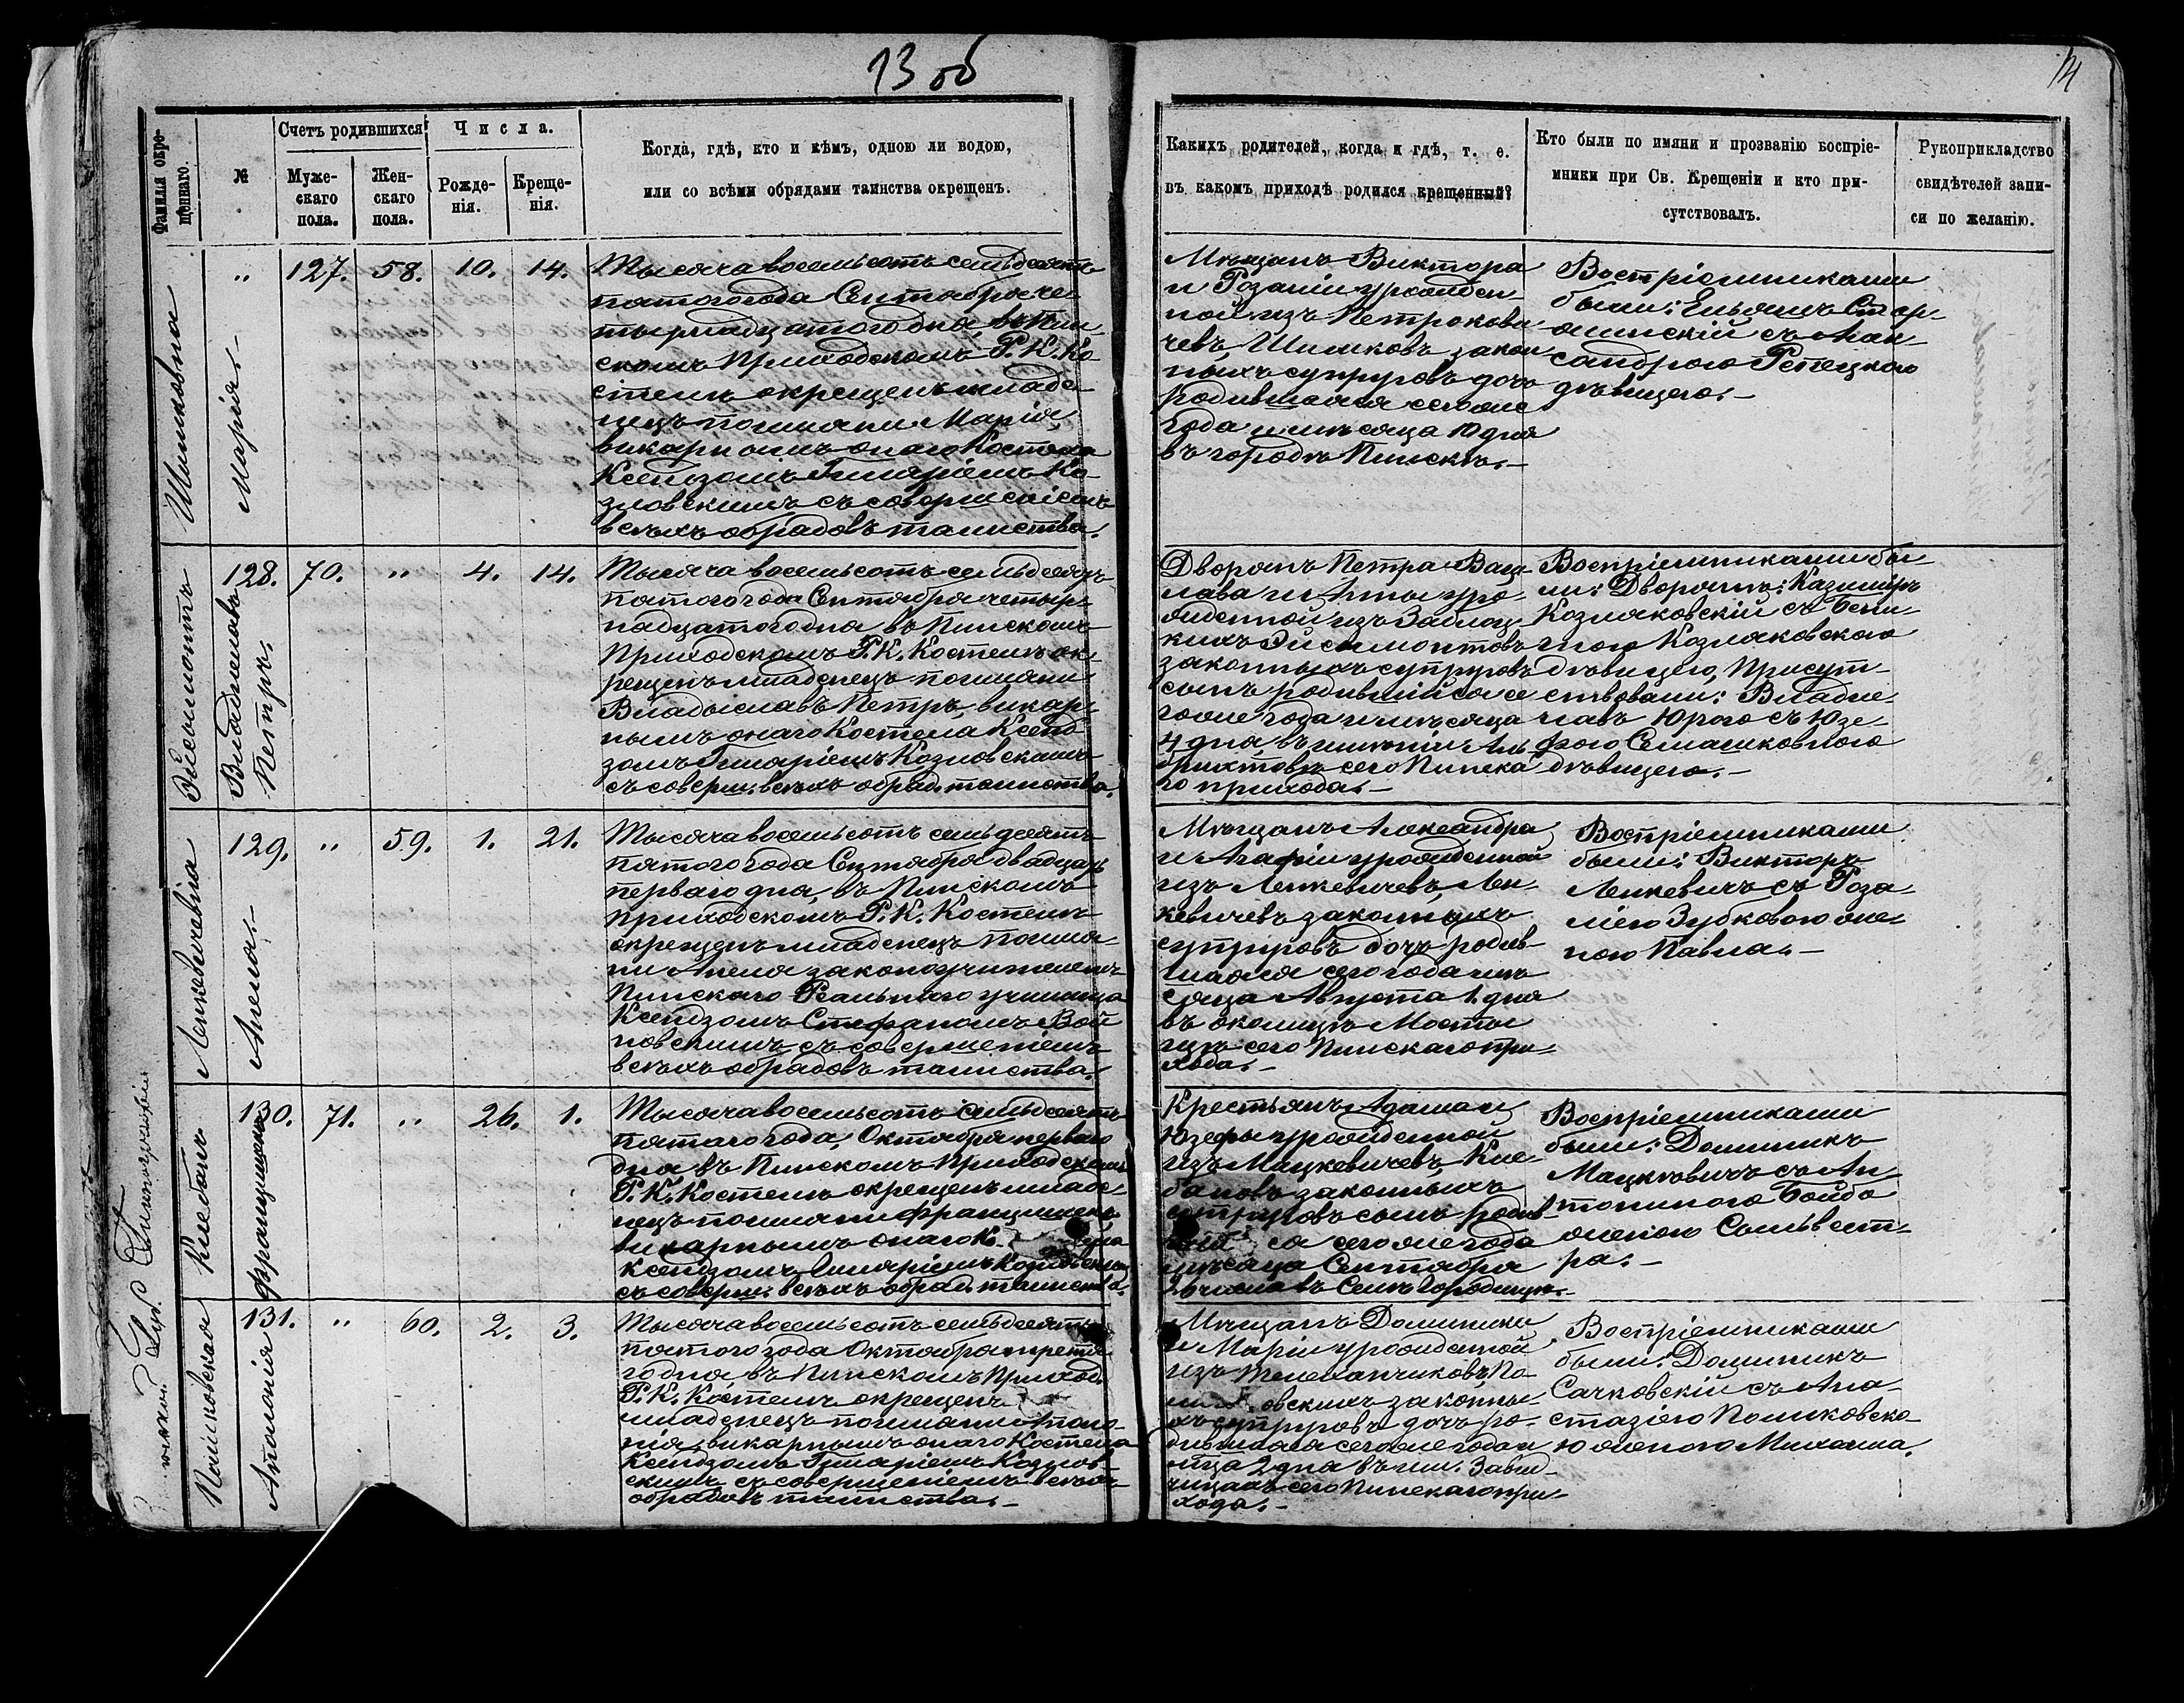 13 об
14
Фамилія окре-
щеннаго.
№
Счетъ родившихся
Муже-
скаго
пола.
Жен-
скаго
пола.
Числа.
Рожде-
нія.
Креще-
нія.
Когда, гдѣ, кто и кѣмъ, одною ли водою,
или со всѣми обрядами таинства окрещенъ.
Какихъ родителей, когда и гдѣ, т. е.
въ какомъ приходѣ родился крещенный?
Кто были по имяни и прозванію воспріе-
мники при Св. Крещеніи и кто при-
сутствовалъ.
Рукоприкладство
свидѣтелей запи-
си по желанію.
Шишковна
Марія.
" 127. 58. 10. 14.
Тысяча восемьсотъ семьдесятъ
пятого года Сентября че-
тырнадцатого дня, въ Пин-
скомъ Приходскомъ Р. К. Ко
стелѣ окрещенъ младе-
нецъ по имяни Марія
викарнымъ онаго Костела
Ксендзомъ Гиляріемъ Ко
зловскимъ съ совершеніемъ
всѣхъ обрядовъ таинства.
Мѣщанъ Виктора
и Розаліи урожден-
ной изъ Петрокови
чевъ, Шишковъ закон
ныхъ супруговъ дочь
родившаяся сего же
года и мѣсяца 10 дня
въ городѣ Пинскѣ.
Воспріемниками
были:
съ
дѣвицею.
Эйсымонтъ
Владиславъ
Петръ.
128. 70. " 4. 14.
Тысяча восемьсотъ семьдесятъ
пятого года Сентября четыр-
надцатого дня въ Пинскомъ
Приходскомъ Р. К. Костелѣ ок-
рещенъ младенецъ по имяни
Владыславъ Петръ, викар-
нымъ онаго Костела Ксенд
зомъ Гиляріемъ Козловскимъ
съ соверш. всѣхъ обряд. таинства.
Дворянъ Петра Вац-
лава и Анны уро-
жденной изъ Заблоц
кихъ Эйсимонтовъ
законныхъ супруговъ
сынъ родившійся се
го же года и мѣсяца
4 дня, въ имѣніи Аль
брихтовѣ сего Пинска
го прихода.
Воспріемниками бы-
ли: Дворянъ: Казиміръ
Козляковскій съ
ною Козляковскою
дѣвицею, Присут-
ствовали: Владис-
лавъ съ Юзе-
фою Семашковною
дѣвицею.
Ленкевичевна
Анеля.
129. " 59. 1. 21.
Тысяча восемьсотъ семьдесятъ
пятого года Сентября двадцать
перваго дня, въ Пинскомъ
приходскомъ Р. К. Костелѣ
окрещенъ младенецъ по имя-
ни Анеля законоучителемъ
Пинскаго Реальнаго училища
Ксендзомъ Стефаномъ Вой
новскимъ съ совершеніемъ
всѣхъ обрядовъ таинства.
Мѣщанъ Александра
и Агафіи урожденной
изъ Ленкевичевъ, Лен-
кевичевъ законныхъ
супруговъ дочь родив-
шаяся сего года мѣ
сяца Августа 1 дня
въ околицѣ Мосты
цѣ сего Пинскаго при-
хода.
Воспріемниками
были: Викторъ
Ленкевичъ съ Роза-
ліею Зубковою же-
ною Павла.
Клебанъ
Францишекъ
130. 71. " 26. 1.
Тысяча восемьсотъ семьдесятъ
пятаго года, Октября перваго
дня въ Пинскомъ Приходскомъ
Р. К. Костелѣ окрещенъ младе-
нецъ по имяни Францишекъ,
викарнымъ онаго
Ксендзомъ Гиляріемъ Козловскимъ
съ соверш. всѣхъ обряд. таинства.
Крестьянъ Адама и
Юзефы урожденной
изъ Мацкевичевъ, Кле
бановъ законныхъ
супруговъ сынъ родив-
шій ся сего же года
мѣсяца Сентября
26 числа въ Селѣ Городищѣ.
Воспріемниками
были: Доминикъ
Мацкѣвичъ съ Ан
тониною
женою Сыльвест-
ра.
Полиховская
Аполонія
131. " 60. 2. 3.
Тысяча восемьсотъ семьдесятъ
пятого года Октября третья
го дня въ Пинскомъ Приход.
Р. К. Костелѣ окрещенъ
младенецъ по имяни Аполо-
нія, викарнымъ онаго Костела
Ксендзомъ Гиляріемъ Козлов-
скимъ съ совершеніемъ всѣхъ
обрядовъ таинства.
Мѣщанъ Доминика
и Маріи урожденной
изъ
овскихъ законны-
хъ супруговъ дочь ро-
дившаяся сего же года и
мѣсяца 2 дня въ им.
сего Пинскаго при-
хода.
Воспріемниками
были: Доминикъ
Сачковскій съ Ана-
стазіею
ю женою Михаила.